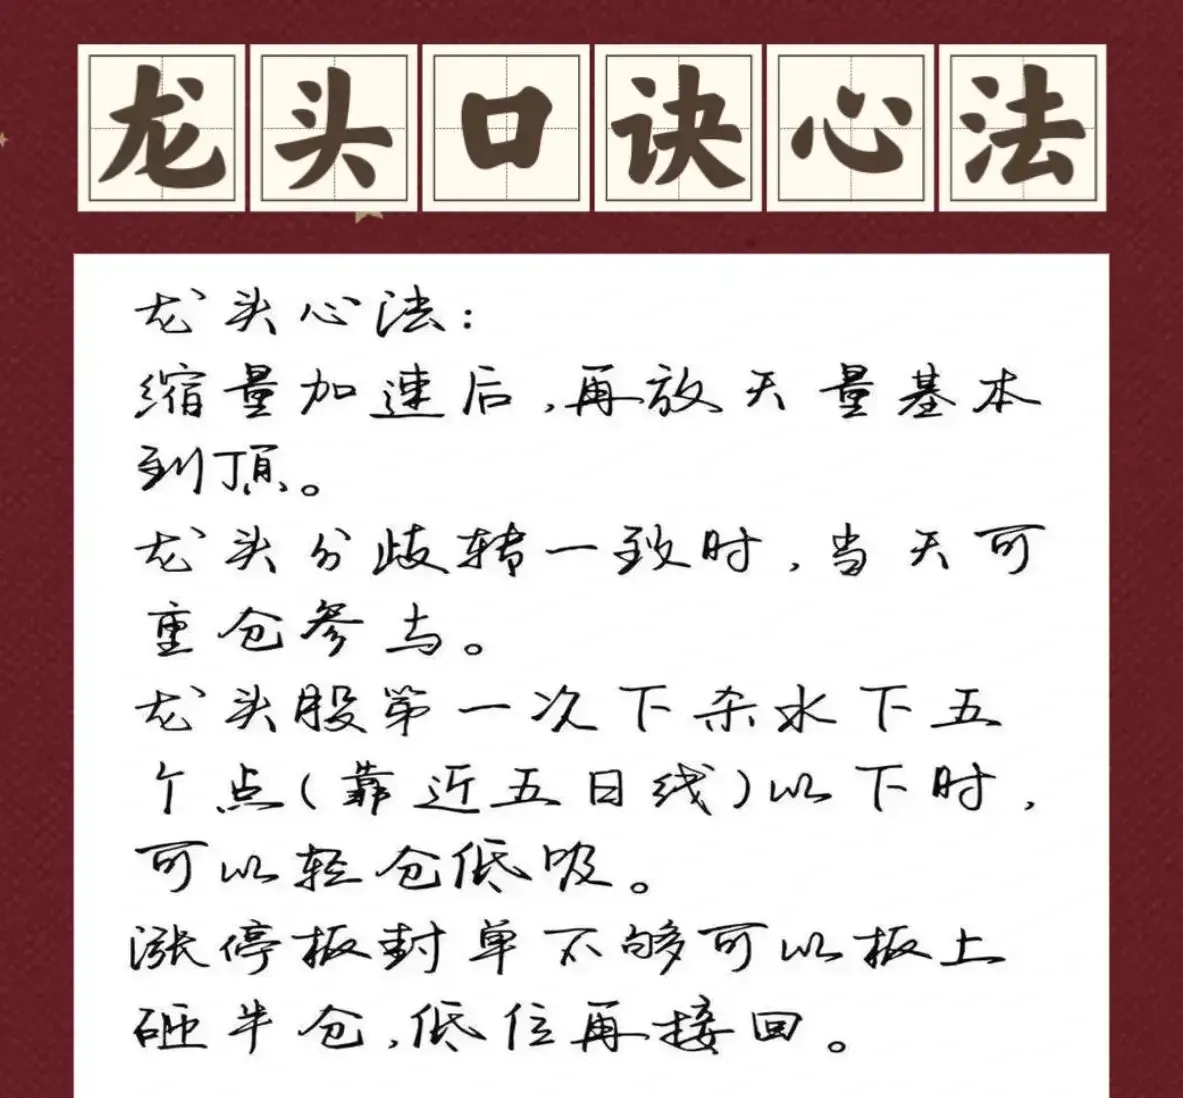 龙头口诀心法
龙头心法：
缩量加速后,再放天量基本
到顶。
龙头分歧转一致时,当天可
重仓参与。
龙头股第一次下杀水下五
个点(靠近五日线)以下时,
可以轻仓低吸。
涨停板封单不够可以板上
砸半仓,低位再接回。